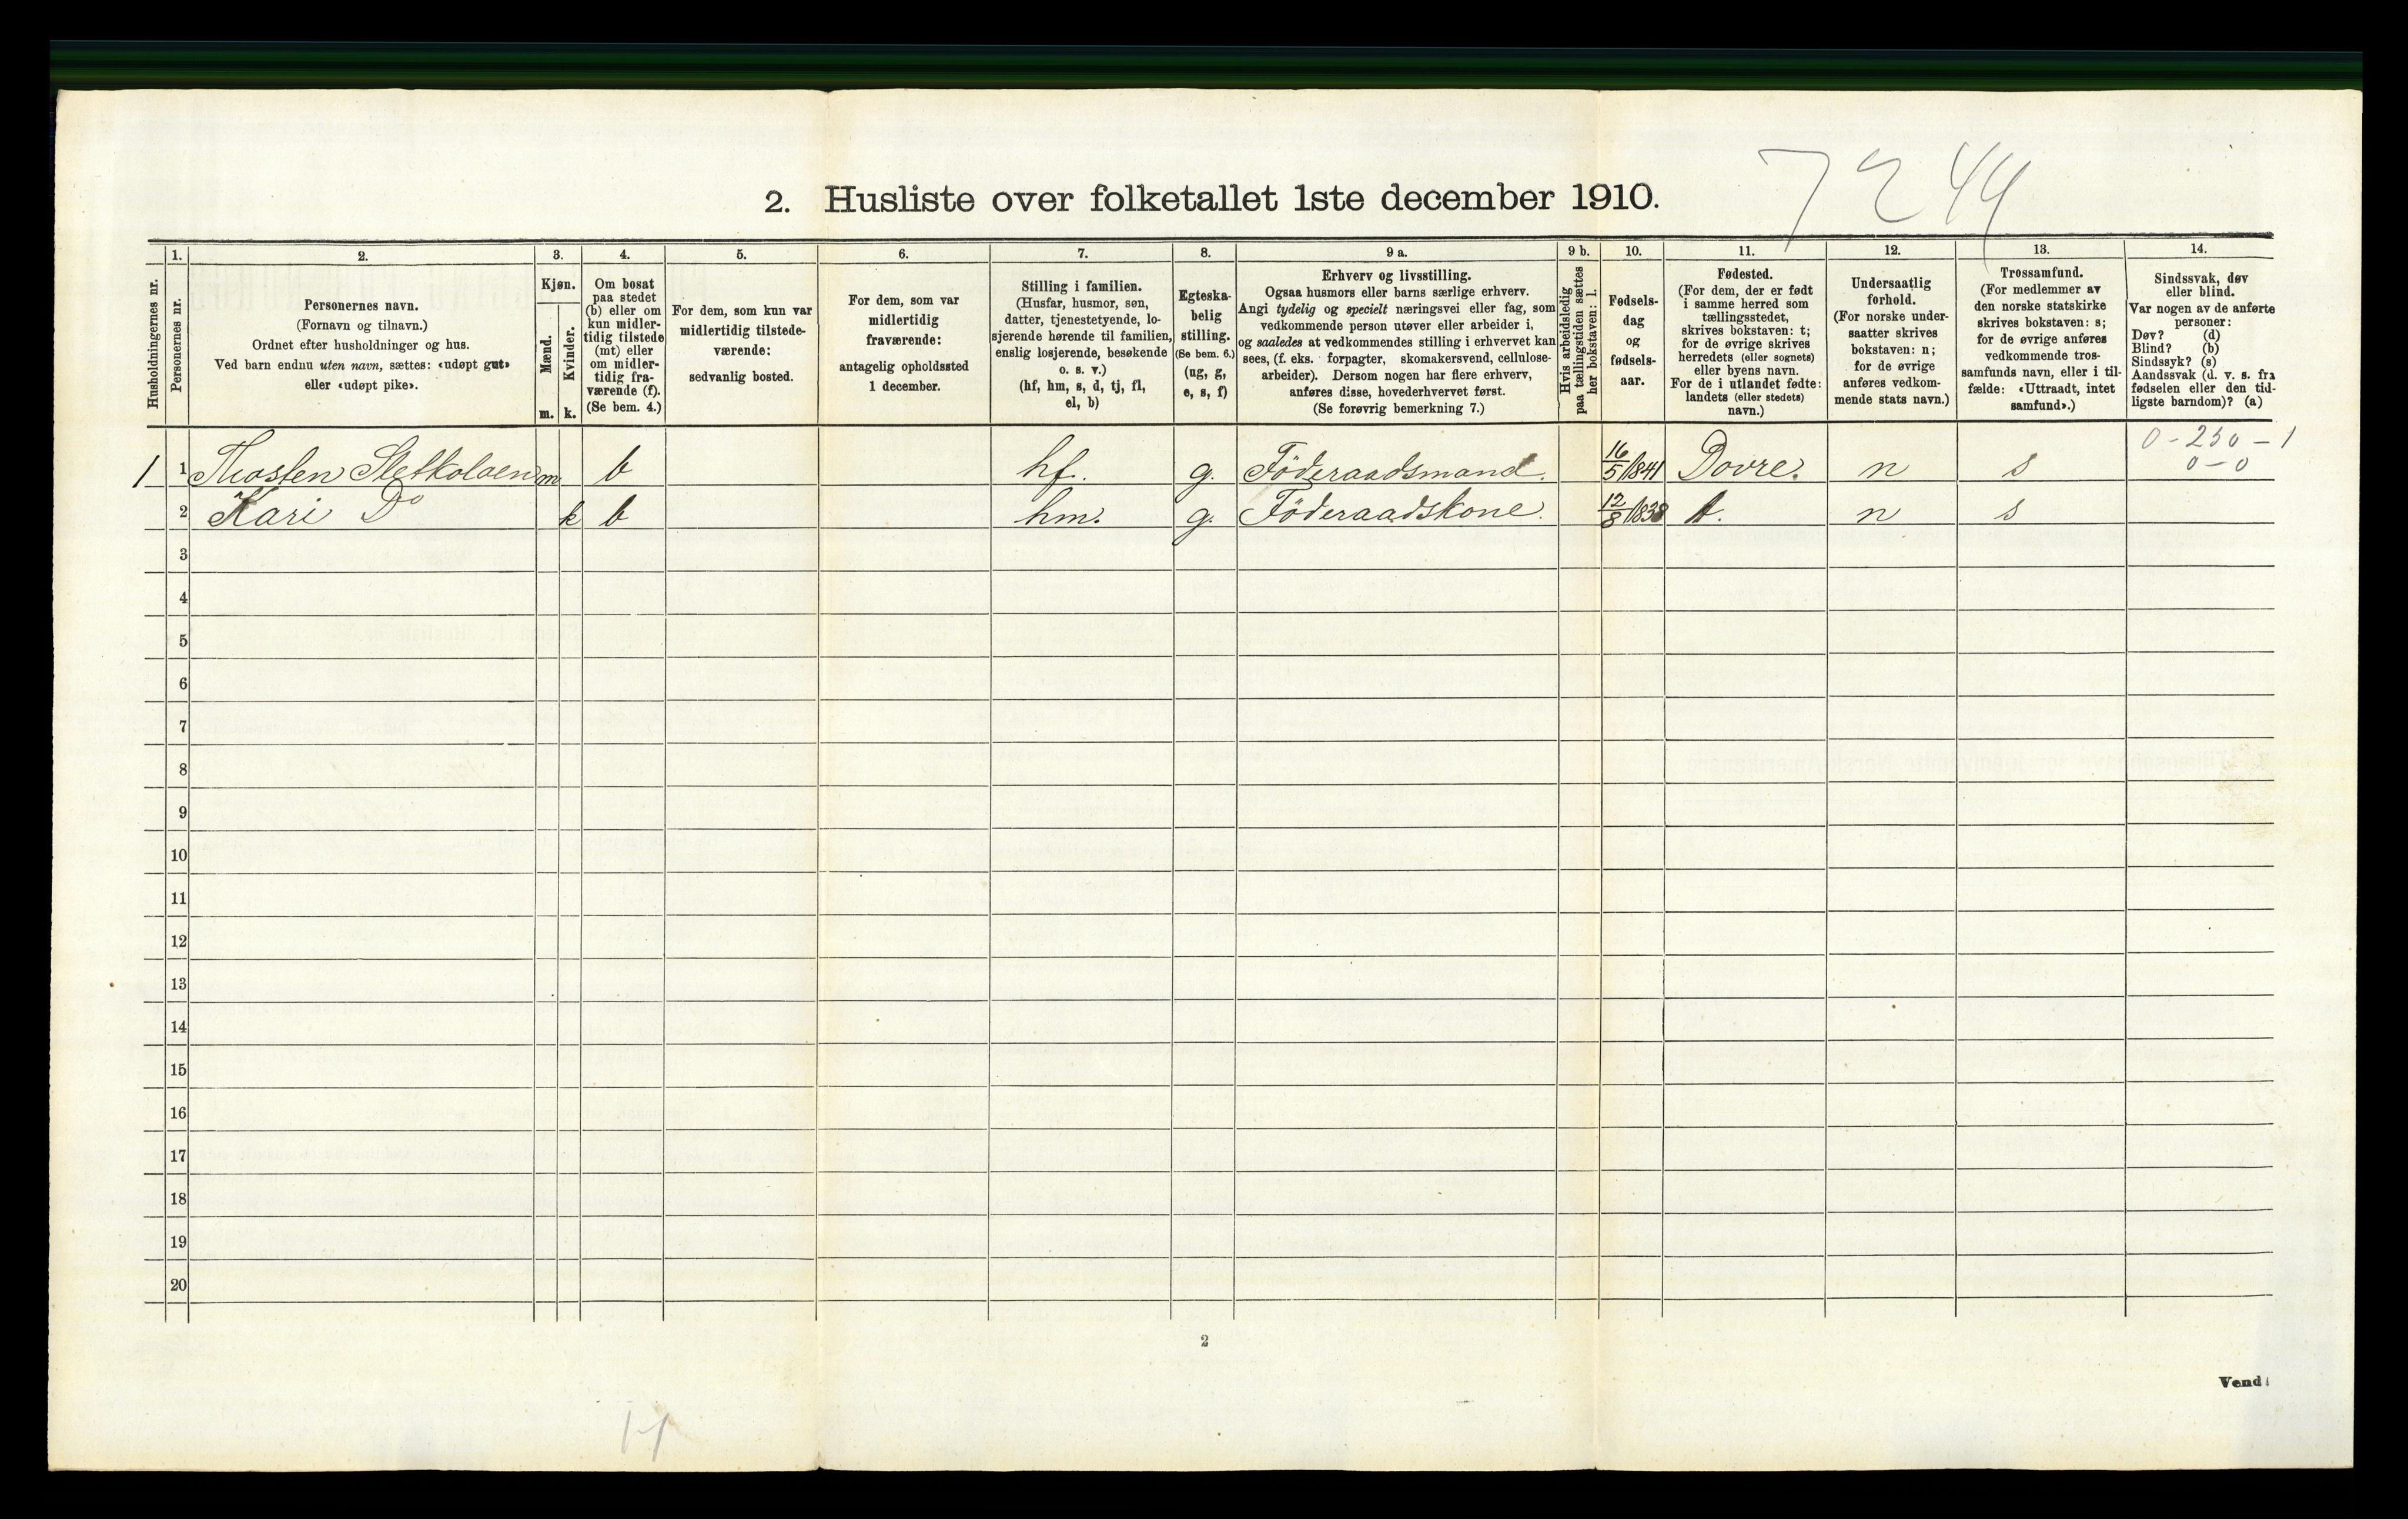 7244
2. Husliste over folketallet 1ste december 1910.
Husholdningernes nr.
1.
Personernes nr.
2.
Personernes navn.
(Fornavn og tilnavn.)
Ordnet efter husholdninger og hus.
Ved barn endnu uten navn, sættes: «udøpt gut»
eller «udøpt pike».
3.
Kjøn.
Mænd.
Kvinder.
m. k.
4.
Om bosat
paa stedet
(b) eller om
kun midler-
tidig tilstede
(mt) eller
om midler-
tidig fra-
værende (f).
(Se bem. 4.)
5.
For dem, som kun var
midlertidig tilstede-
værende:
sedvanlig bosted.
6.
For dem, som var
midlertidig
fraværende:
antagelig opholdssted
1 december.
7.
Stilling i familien.
(Husfar, husmor, søn,
datter, tjenestetyende, lo-
sjerende hørende til familien,
enslig losjerende, besøkende
o. s. v.)
(hf, hm, s, d, tj, fl,
el, b)
8.
Egteska-
belig
stilling.
(Se bem. 6.)
(ug, g,
e, s, f)
9 a.
Erhverv og livsstilling.
Ogsaa husmors eller barns særlige erhverv.
Angi tydelig og specielt næringsvei eller fag, som
vedkommende person utøver eller arbeider i,
og saaledes at vedkommendes stilling i erhvervet kan
sees, (f. eks. forpagter, skomakersvend, cellulose-
arbeider). Dersom nogen har flere erhverv,
anføres disse, hovederhvervet først.
(Se forøvrig bemerkning 7.)
9 b.
Hvis arbeidsledig
paa tællingstiden sættes
her bokstaven: l.
10.
Fødsels-
dag
og
fødsels-
aar.
11.
Fødested.
(For dem, der er født
i samme herred som
tællingsstedet,
skrives bokstaven: t;
for de øvrige skrives
herredets (eller sognets)
eller byens navn.
For de i utlandet fødte:
landets (eller stedets)
navn.)
12.
Undersaatlig
forhold.
(For norske under-
saatter skrives
bokstaven: n;
for de øvrige
anføres vedkom-
mende stats navn.)
13.
Trossamfund.
(For medlemmer av
den norske statskirke
skrives bokstaven: s;
for de øvrige anføres
vedkommende tros-
samfunds navn, eller i til-
fælde: «Uttraadt, intet
samfund».)
14.
Sindssvak, døv
eller blind.
Var nogen av de anførte
personer:
Døv? (d)
Blind? (b)
Sindssyk? (s)
Aandssvak (d. v. s. fra
fødselen eller den tid-
ligste barndom)? (a)
0-230-1
0-0
1 1 Thosten Sletkoloen m b hf. g. Föderaadsmand. 16/5 1841 Dovre. n s
2 Kari Do k b hm. g. Föderaadskone. 12/8 1838 t. n s
3
4
5
6
7
8
9
10
11
12
13
14
15
16
17
18
19
20
2
Vend!